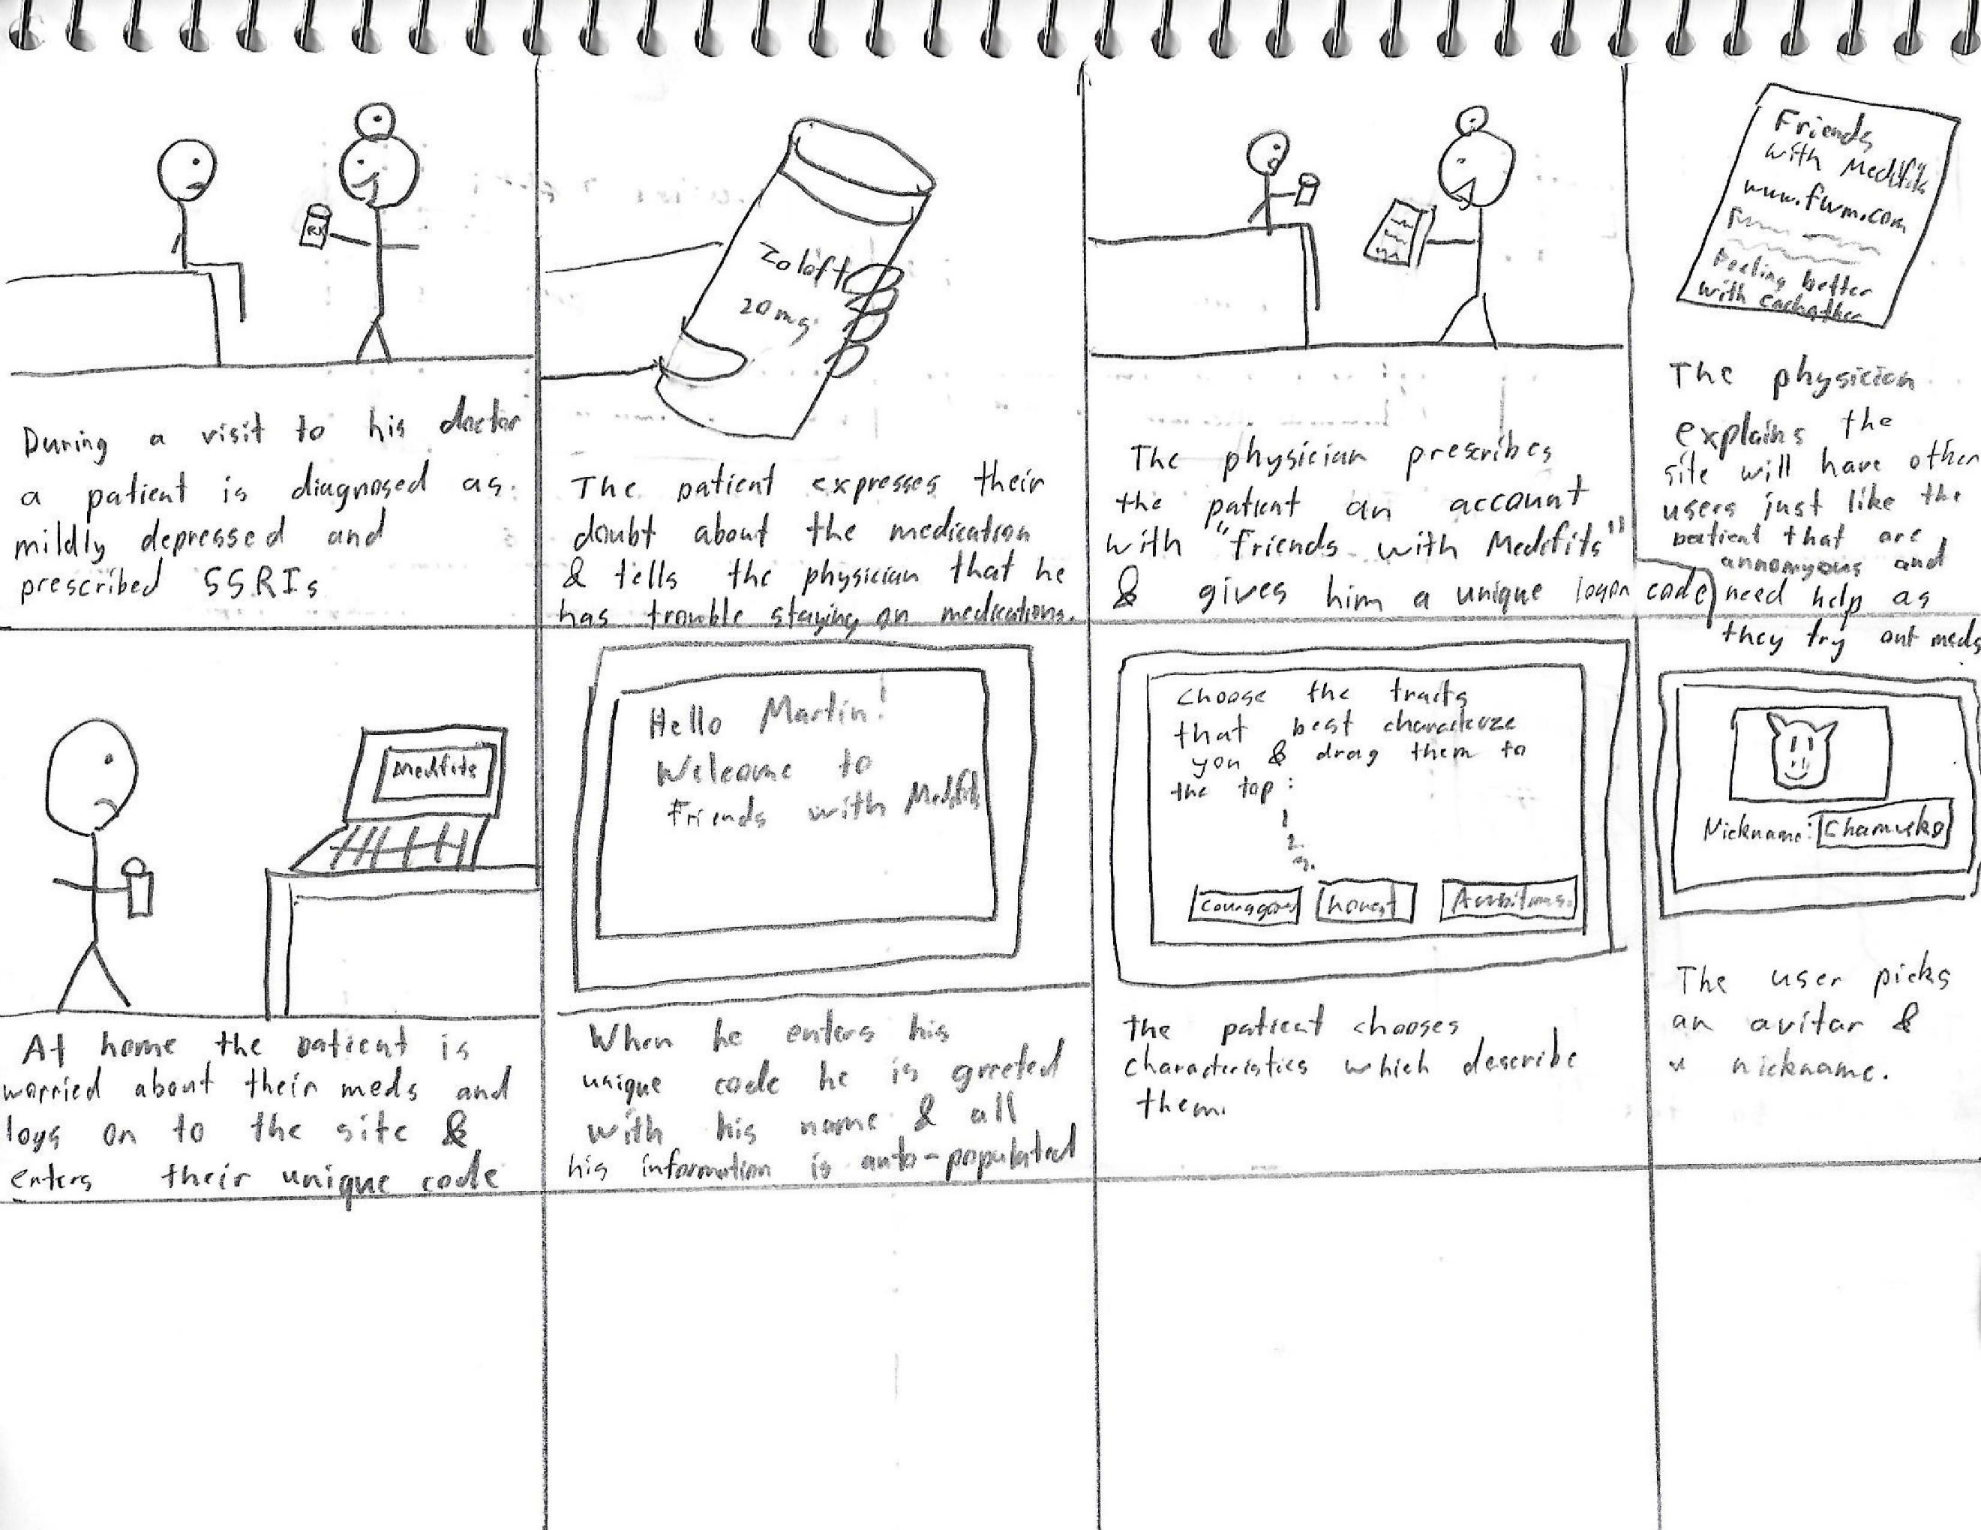 RX
During a visit to his doctor
a patient is diagnosed as
mildly depressed and
prescribed SSRIs
Zoloft
20mg
The patient expresses their
doubt about the medication
& tells the physician that he
has trouble staying on medications.
The physician prescribes
the patient an account
with "Friends with Medifits"
& gives him a unique logon code
Friends
with Medifits
www.fwm.com
Feeling better
with eachother
The physician
explains the
site will have other
users just like the
patient that are
annomyous and
need help as
they try out meds
Medfits
At home the patient is
worried about their meds and
logs on to the site &
enters their unique code
Hello Martin!
Welcome to
Friends with Medfits
When he enters his
unique code he is greeted
with his name & all
his information is auto-populated
Choose the traits
that best characterize
you & drag them to
the top:
1
2.
3.
Courageous honest Ambitious
the patient chooses
characteristics which describe
them.
Nickname: Chamuko
The user picks
an avitar &
nickname.